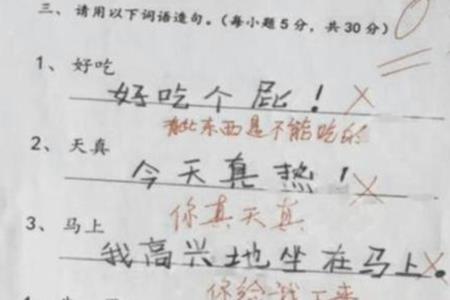 三、请用以下词语造句。(每小题5分，共30分)
1、好吃
好吃个屁！
有些东西是不能吃的
2、天真
今天真热！
你真天真
3、马上
我高兴地坐在马上。
你给我下来